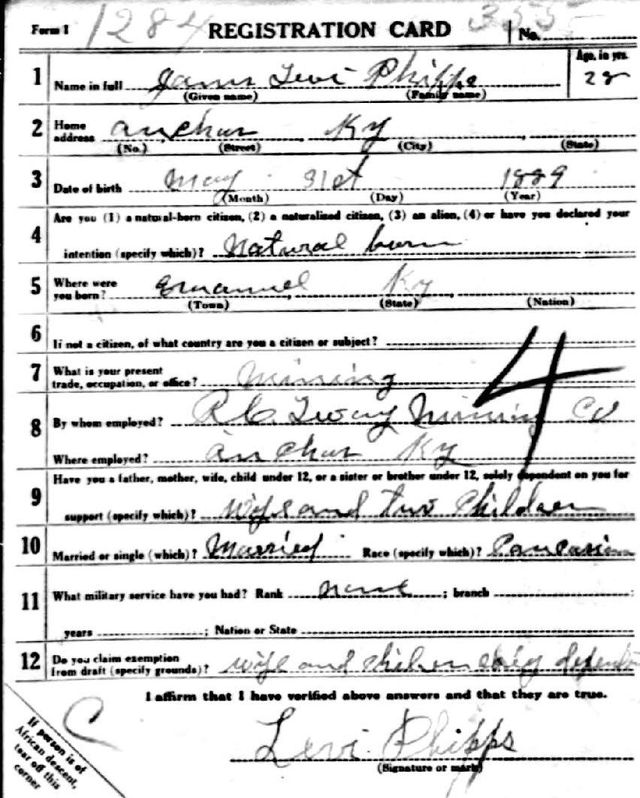 Form 1 1284 REGISTRATION CARD 355 No.
1 Name in full James Levi Phipps Age, in yrs. 28
(Given name) (Family name)
2 Home address Anchor Ky
(No.) (Street) (City) (State)
3 Date of birth May 31st 1889
(Month) (Day) (Year)
4 Are you (1) a natural-born citizen, (2) a naturalized citizen, (3) an alien, (4) or have you declared your
intention (specify which)? Natural born
5 Where were you born? Emanuel Ky
(Town) (State) (Nation)
6 If not a citizen, of what country are you a citizen or subject?
7 What is your present trade, occupation, or office? Mining
8 By whom employed? R.C. Tway Mining Co
Where employed? Anchor Ky
4
9 Have you a father, mother, wife, child under 12, or a sister or brother under 12, solely dependent on you for
support (specify which)? Wife and two Children
10 Married or single (which)? Married Race (specify which)? Caucasian
11 What military service have you had? Rank none ; branch ;
years ; Nation or State
12 Do you claim exemption from draft (specify grounds)? Wife and children
I affirm that I have verified above answers and that they are true.
C
Levi Phipps
(Signature or mark)
If person is of
African descent,
tear off this
corner